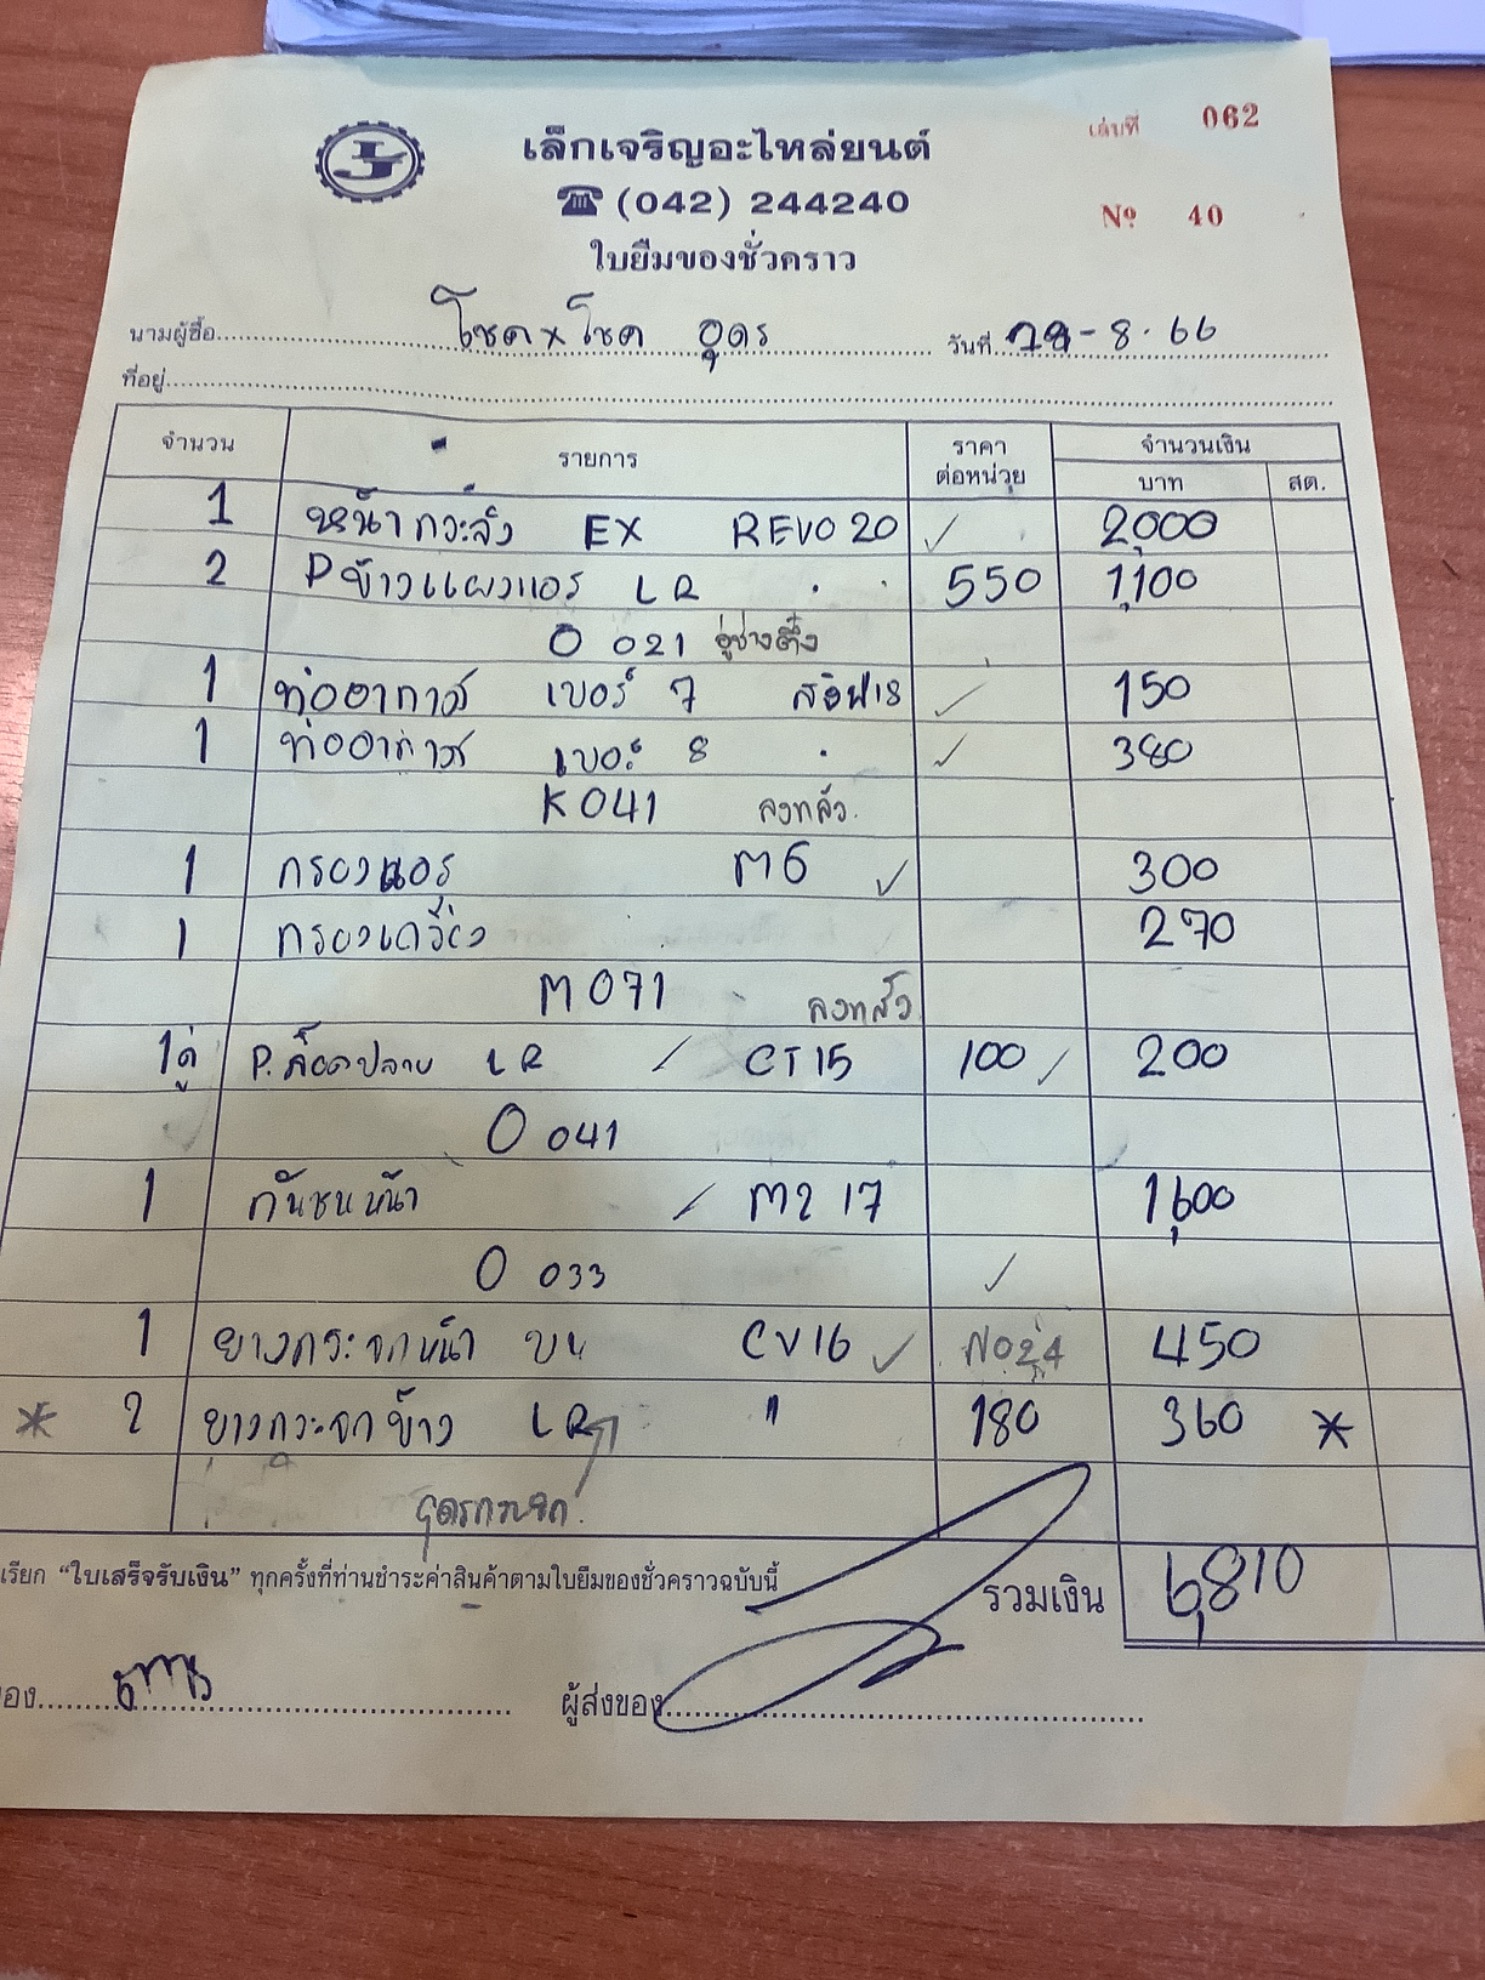 เล่มที่ 062
เล็กเจริญอะไหล่ยนต์
☎ (042) 244240
Nº 40
ใบยืมของชั่วคราว
นามผู้ซื้อ โชค x โชค อุดร วันที่ -8.66
ที่อยู่
จำนวน รายการ ราคาต่อหน่วย จำนวนเงิน
บาท สต.
1 หน้ากระจัง EX REVO 20 ✓ 2,000
2 P ข้างแผงแอร์ LR " 550 1,100
O 021 อู่ช่างตึ๋ง
1 ท่ออากาศ เบอร์ 7 ✓ 150
1 ท่ออากาศ เบอร์ 8 " ✓ 380
K 041 ลงทลัง
1 กรองแอร์ M6 ✓ 300
1 กรองเครื่อง 270
M 071 ลงทลัง
1คู่ P. ล็อคปลาย LR / CT15 100 ✓ 200
O 041
1 กันชนหน้า / M2 17 1,600
O 033 ✓
1 ยางกระจกหน้า บน CV16 ✓ N024 450
* 2 ยางกระจกข้าง LR " 180 360 *
เรียก “ใบเสร็จรับเงิน” ทุกครั้งที่ท่านชำระค่าสินค้าตามใบยืมของชั่วคราวฉบับนี้
รวมเงิน 6,810
ของ ผู้ส่งของ